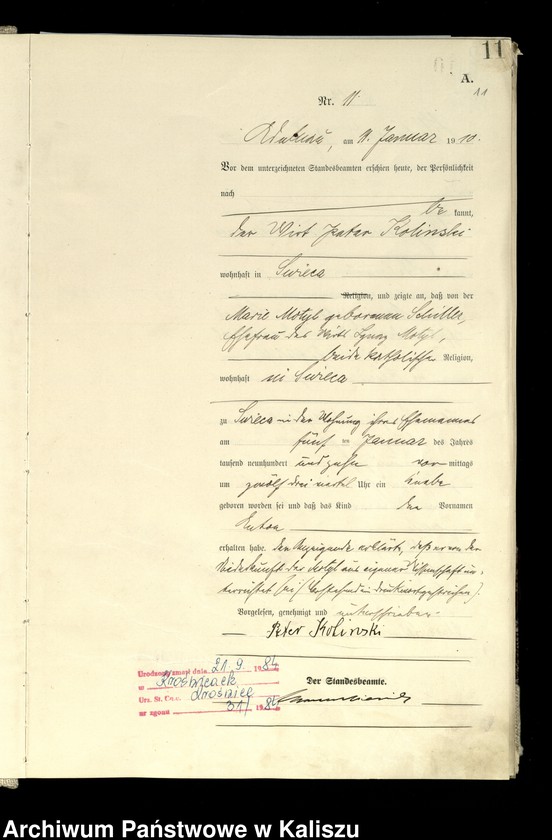 11
A.
11
Nr. 11
Adelnau, am 11. Januar 1910.
Vor dem unterzeichneten Standesbeamten erschien heute, der Persönlichkeit
nach
be kannt,
der Wirt Peter Kolinski
wohnhaft in Swieca
Religion, und zeigte an, daß von der
Marie Motyl geborenen Schiller,
Ehefrau des Wirts Ignaz Motyl,
beide katholischer Religion,
wohnhaft in Swieca
zu Swieca in der Wohnung ihres Ehemannes
am fünf ten Januar des Jahres
tausend neunhundert und zehn vor mittags
um zwölf drei viertel Uhr ein Knabe
geboren worden sei und daß das Kind den Vornamen
Anton
erhalten habe. Der Anzeigende erklärt, daß er von der
Niederkunft der Motyl aus eigener Wissenschaft un-
terrichtet sei.
Vorgelesen, genehmigt und unterschrieben.
Peter Kolinski
Der Standesbeamte.
zmarł dnia 21.9. 1984
w
Urz. St. Cyw.
nr zgonu 31/ 1984
Archiwum Państwowe w Kaliszu